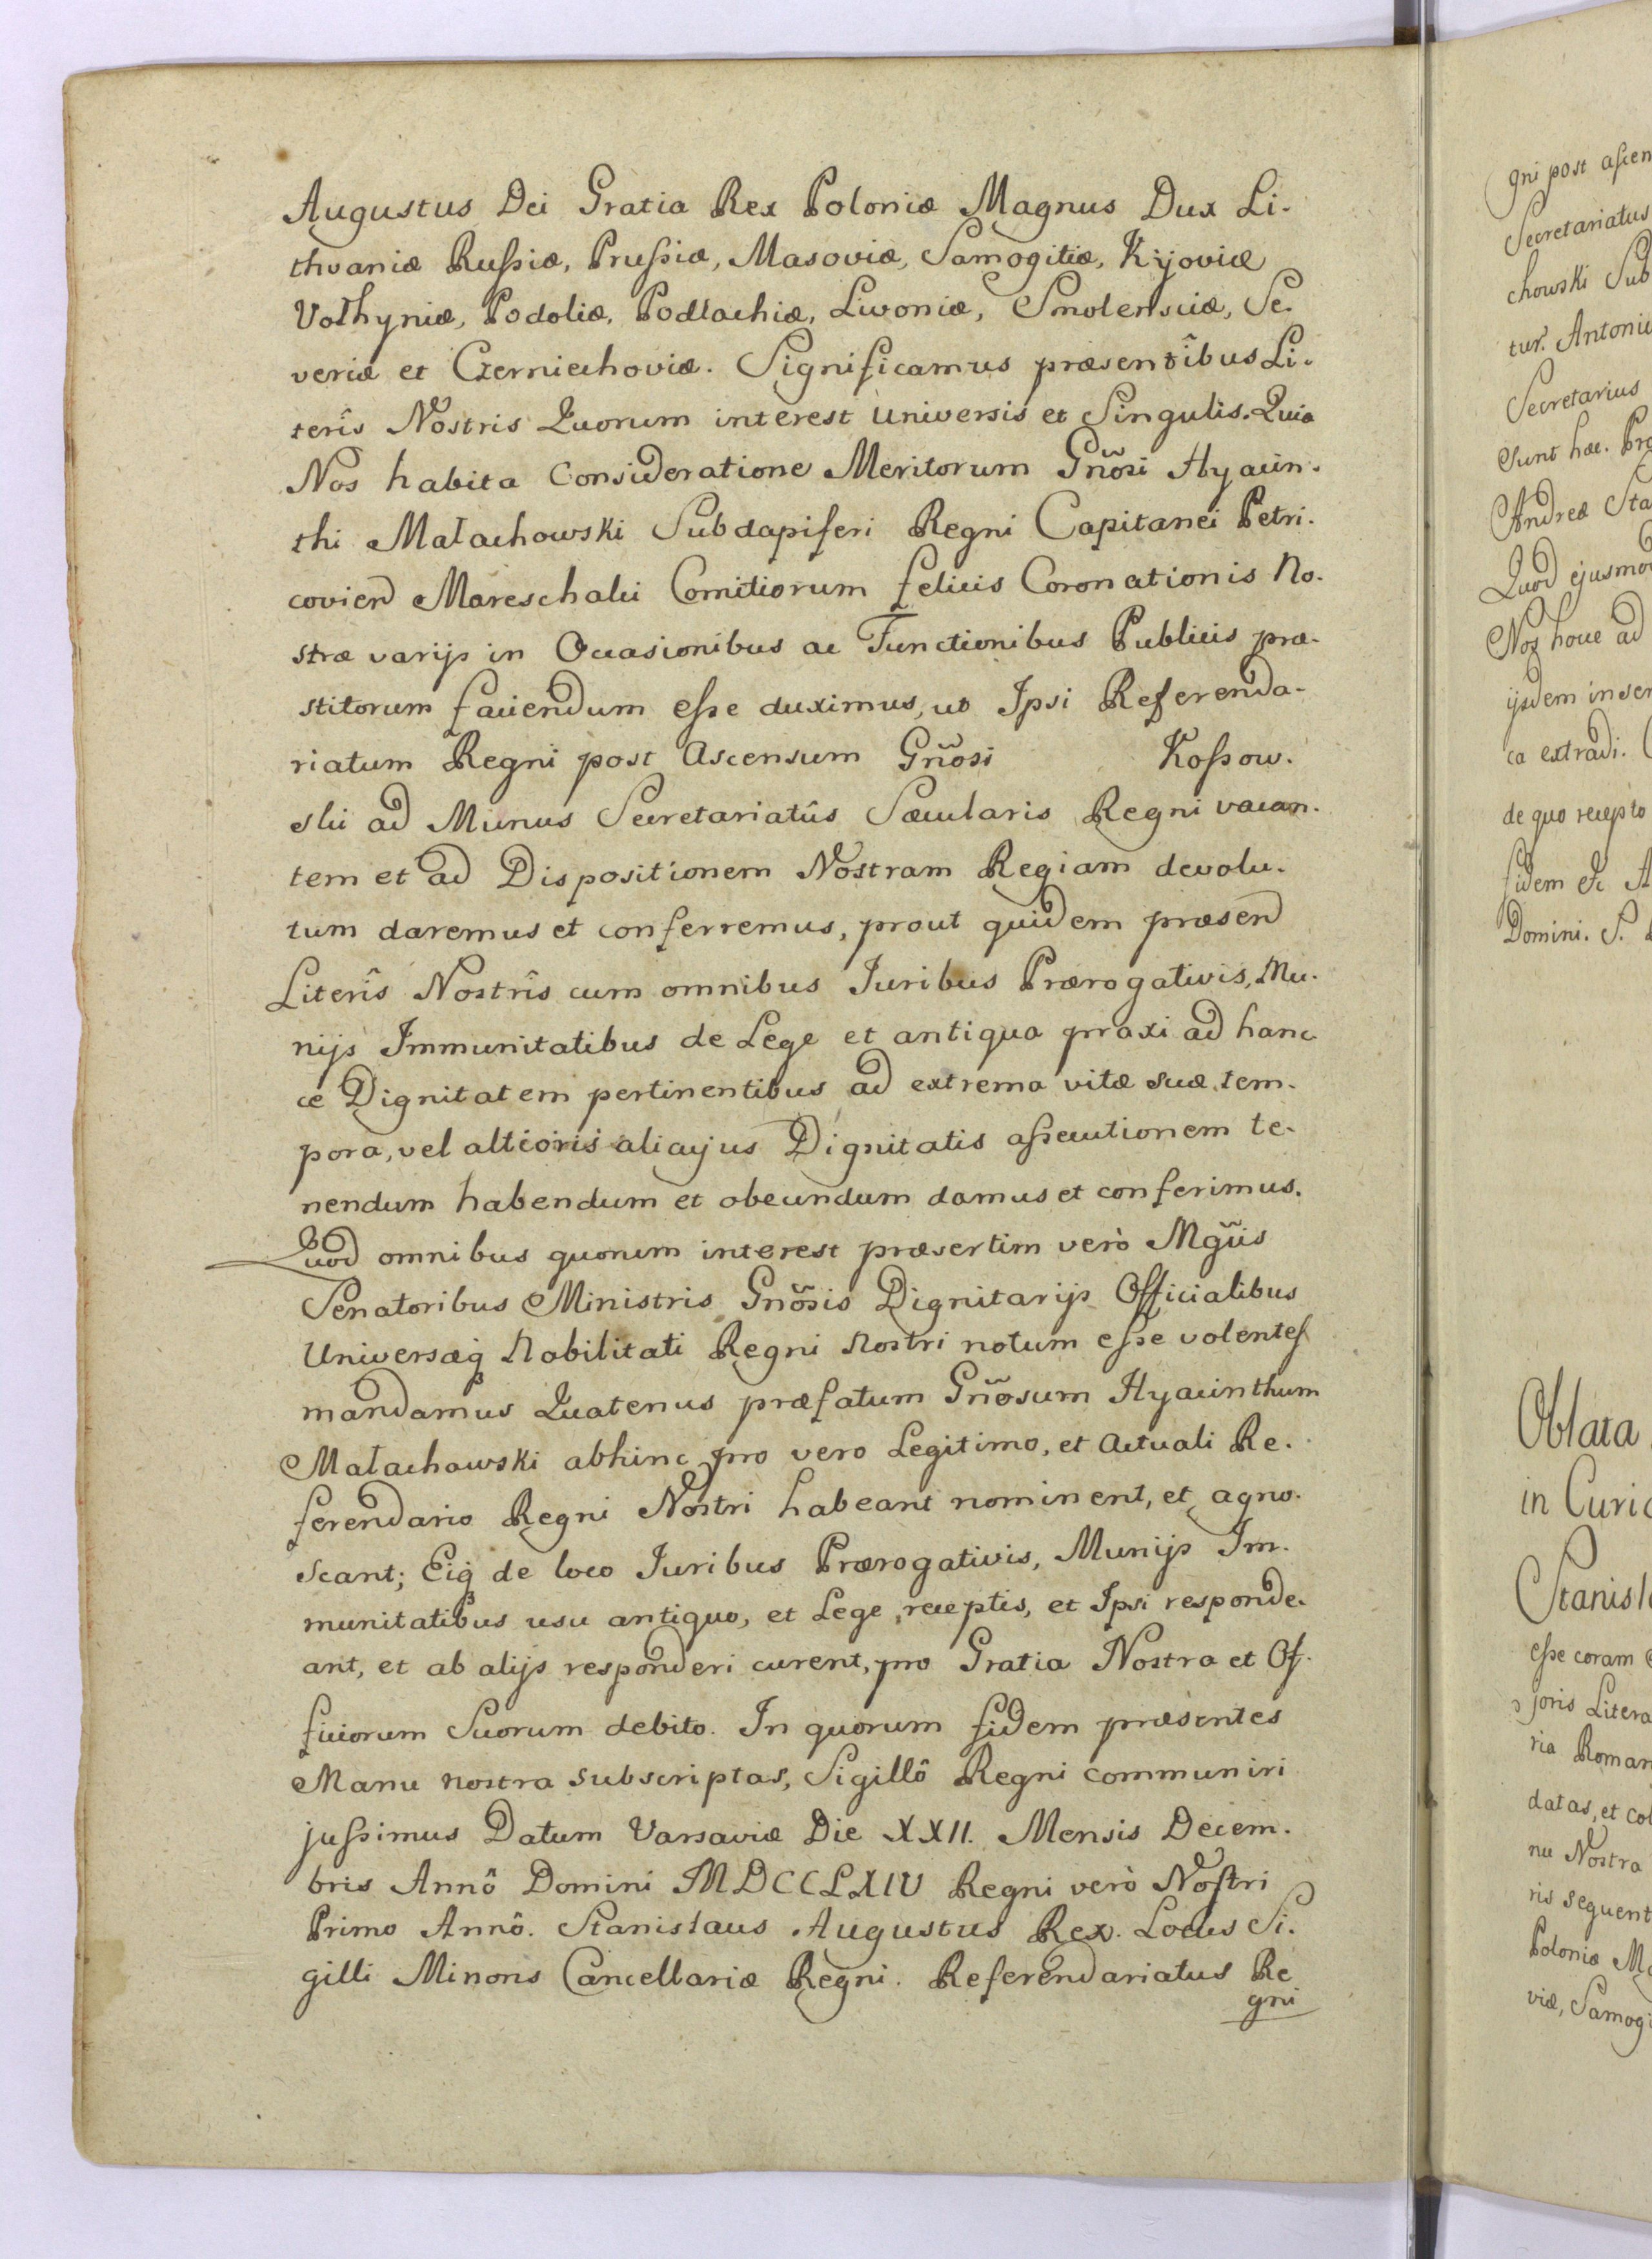 Augustus Dei Gratia Rex Poloniæ Magnus Dux Li-
thvaniæ Rußiæ, Prußiæ, Masoviæ, Samogitiæ, Kijoviæ
Volhyniæ, Podoliæ, Podlachiæ, Livoniæ, Smolensciæ, Se-
veriæ et Czerniechoviæ. Significamus præsentibus Li-
terîs Nostris Quorum interest Universis et Singulis. Quia
Nos habita Consideratione Meritorum Gñosi Hyacin-
thi Małachowski Subdapiferi Regni Capitanei Petri-
covien Mareschalci Comitiorum felicis Coronationis No-
stræ varijs in Occasionibus ac Functionibus Publicis præ-
stitorum faciendum eße duximus, ut Ipsi Referenda-
riatum Regni post Ascensum Gñosi Koßow-
slii ad Munus Secretariatûs Sæcularis Regni vacan-
tem et ad Dispositionem Nostram Regiam devolu-
tum daremus et conferremus, prout quidem præsen
Literîs Nostrîs cum omnibus Juribus Prærogativis, Mu-
nijs Immunitatibus de Lege et antiqua praxi ad hanc
ce Dignitatem pertinentibus ad extrema vitæ suæ tem-
pora, vel altioris alicujus Dignitatis aßecutionem te-
nendum habendum et obeundum damus et conferimus.
Quod omnibus quorum interest præsertim verò Mgñis
Senatoribus Ministris Gñosis Dignitarijs Officialibus
Universæq Nobilitati Regni Nostri notum eße volentes
mandamus Quatenus præfatum Gñosum Hyacinthum
Małachowski abhinc pro vero Legitimo, et Actuali Re-
ferendario Regni Nostri habeant nominent, et agno-
scant; Eiq de loco Juribus Prærogativis, Munijs Im-
munitatibus usu antiquo, et Lege receptis, et Ipsi responde-
ant, et ab alijs responderi curent, pro Gratia Nostra et Of-
ficiorum Suorum debito. In quorum fidem præsentes
Manu nostra subscriptas, Sigillô Regni communiri
jußimus Datum Varsaviæ Die XXII. Mensis Decem-
bris Annô Domini MDCCLXIV Regni verò Nostri
Primo Annô. Stanislaus Augustus Rex. Locus Si-
gilli Minoris Cancellariæ Regni. Referendariatus Re
gni
gni post ascen
Secretariatus
chowski Sub
tur. Antoniu
Secretarius
Sunt hæ. Pro
Andreæ Sta
Quod ejusmo
Nos hocce ad
ijsdem inser
ca extradi.
de quo recepto
fidem &c A
Domini. S.
Oblata
in Curia
Stanisla
eße coram
joris Litera
ria Roman
datas, et col
nu Nostra
ris sequent
Poloniæ Ma
viæ, Samogi